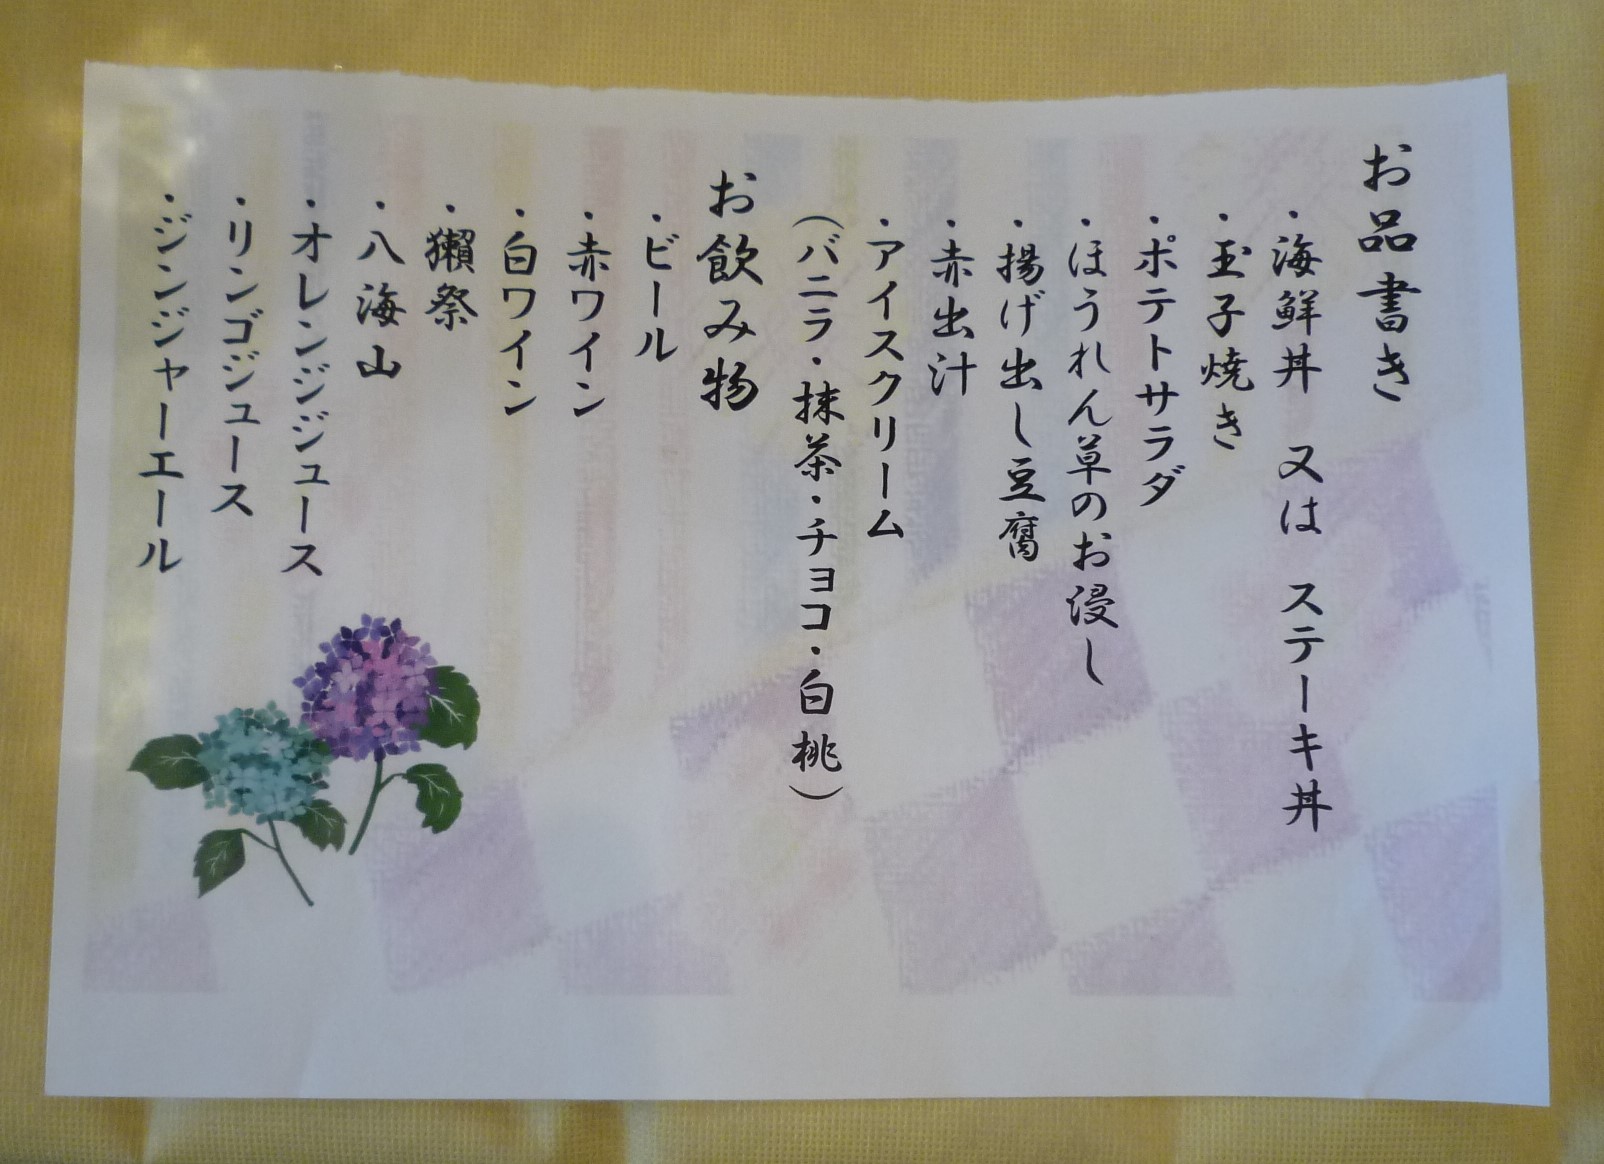 お品書き
・海鮮丼 又は ステーキ丼
・玉子焼き
・ポテトサラダ
・ほうれん草のお浸し
・揚げ出し豆腐
・赤出汁
・アイスクリーム
(バニラ・抹茶・チョコ・白桃)
お飲み物
・ビール
・赤ワイン
・白ワイン
・獺祭
・八海山
・オレンジジュース
・リンゴジュース
・ジンジャーエール